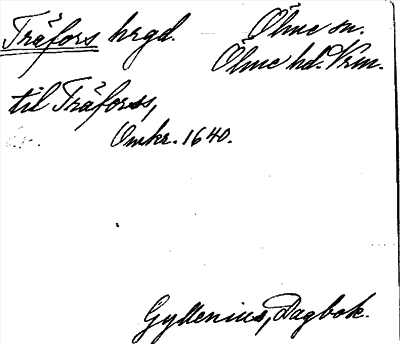 Träfors hrgd. Ölme sn.
Ölme hd. Vrm.
til Träforss,
Omkr. 1640.
Gyllenius, Dagbok.